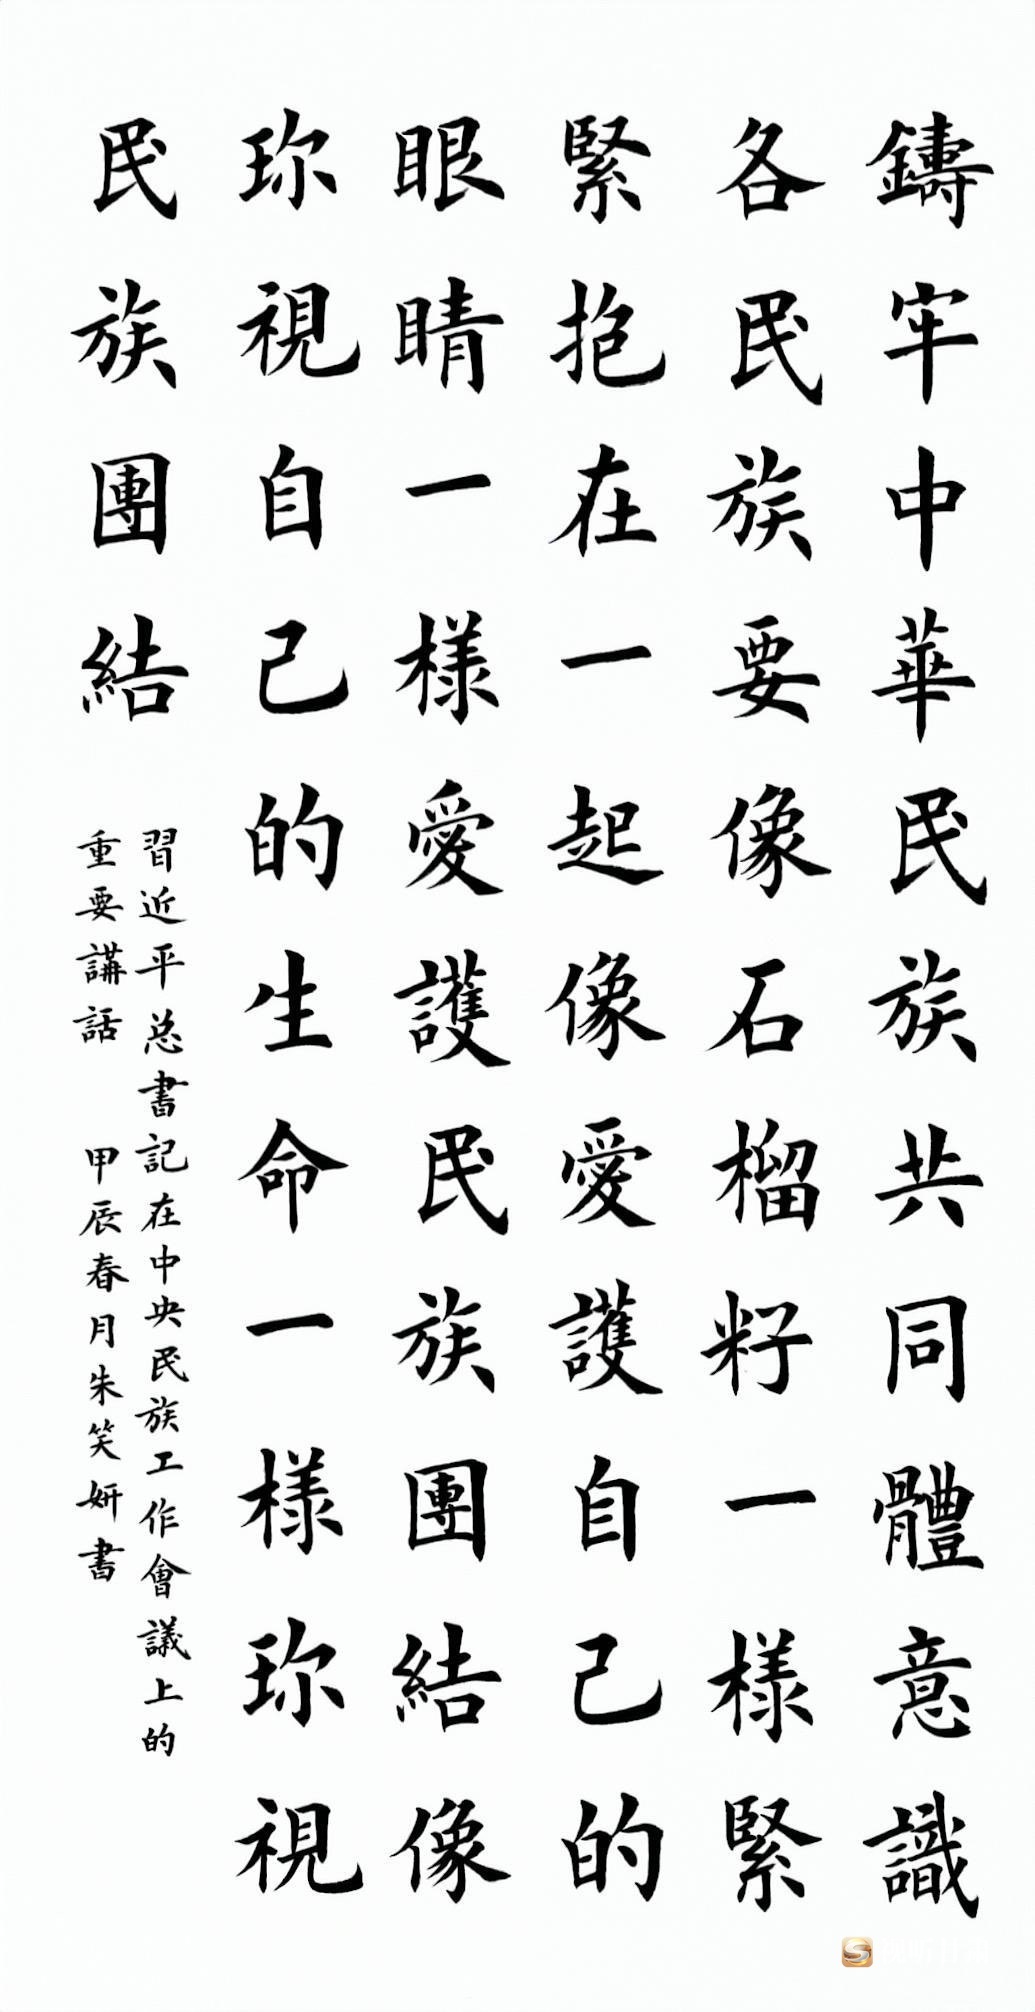 鑄牢中華民族共同體意識
各民族要像石榴籽一樣緊
緊抱在一起像愛護自己的
眼睛一樣愛護民族團結像
珎視自己的生命一樣珎視
民族團結
習近平总書記在中央民族工作會議上的
重要講話 甲辰春月朱笑妍書